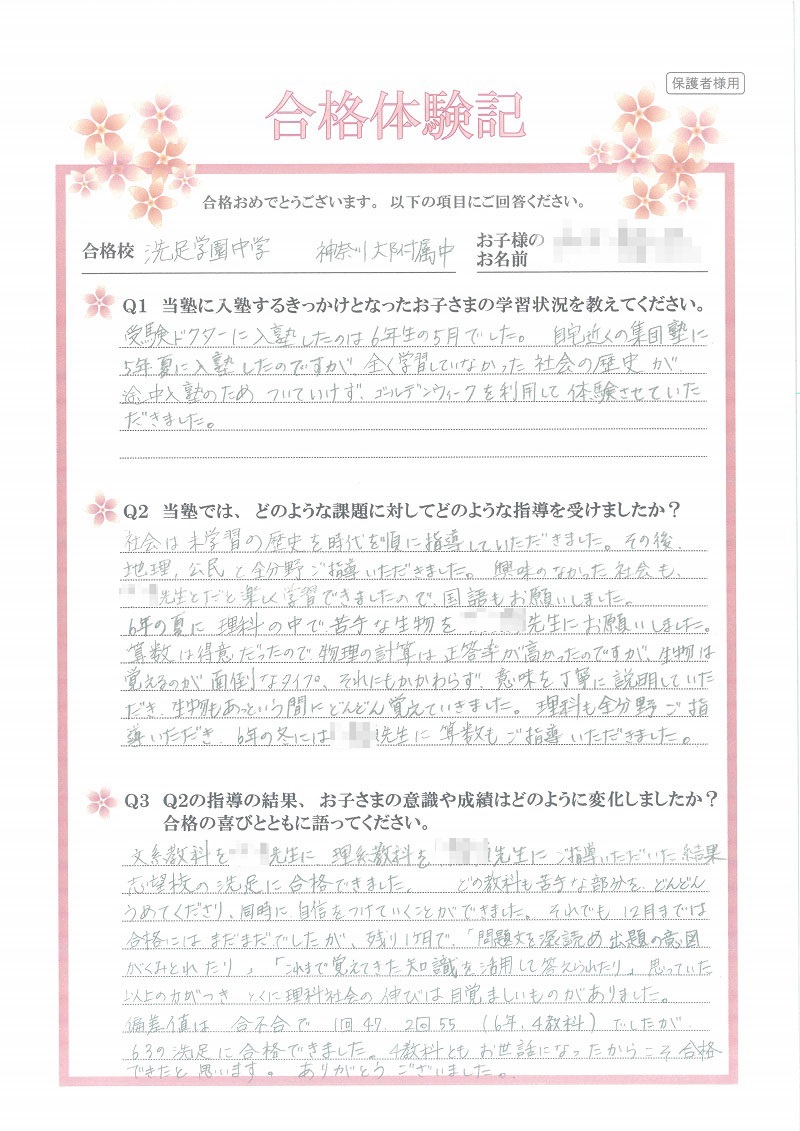 保護者様用
合格体験記
合格おめでとうございます。以下の項目にご回答ください。
合格校 洗足学園中学 神奈川大附属中
お子様のお名前
Q1 当塾に入塾するきっかけとなったお子さまの学習状況を教えてください。
受験ドクターに入塾したのは6年生の5月でした。自宅近くの集団塾に
5年夏に入塾したのですが 全く学習していなかった社会の歴史が
途中入塾のため ついていけず、ゴールデンウィークを利用して体験させていた
だきました。
Q2 当塾では、どのような課題に対してどのような指導を受けましたか？
社会は未学習の歴史を時代を順に指導していただきました。その後、
地理，公民と全分野ご指導いただきました。興味のなかった社会も、
先生とだと楽しく学習できましたので、国語もお願いしました。
6年の夏に理科の中で苦手な生物を 先生にお願いしました。
算数は得意だったので物理の計算は正答率が高かったのですが、生物は
覚えるのが面倒なタイプ、それにもかかわらず 意味を丁寧に説明していた
だき、生物もあっという間にどんどん覚えていきました。理科も全分野ご指
導いただき、6年の冬には 先生に算数もご指導いただきました。
Q3 Q2の指導の結果、お子さまの意識や成績はどのように変化しましたか？
合格の喜びとともに語ってください。
文系教科を 先生に 理系教科を 先生にご指導いただいた結果
志望校の洗足に合格できました。 どの教科も苦手な部分を どんどん
うめてくださり、同時に自信をつけていくことができました。それでも12月までは
合格にはまだまだでしたが、残り1ヶ月で、「問題文を深く読め出題の意図
がくみとれたり」、「これまで覚えてきた知識を活用して答えられたり」思っていた
以上の力がつき とくに理科社会の伸びは目覚ましいものがありました。
偏差値は 合不合で 1回47、2回55 （6年、4教科）でしたが
63の洗足に合格できました。4教科ともお世話になったからこそ合格
できたと思います。ありがとうございました。